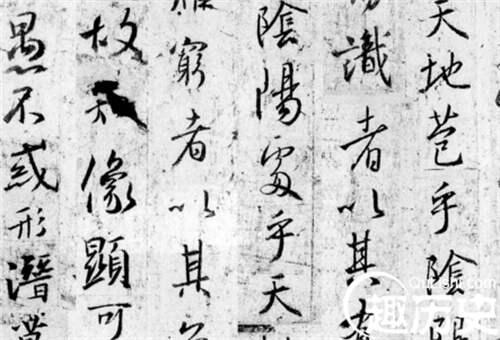 天地苞乎陰陽
識者以其有
陰陽處乎天
難窮者以其
故知像顯可
愚不惑形潛莫
趣历史
Qulishi.com